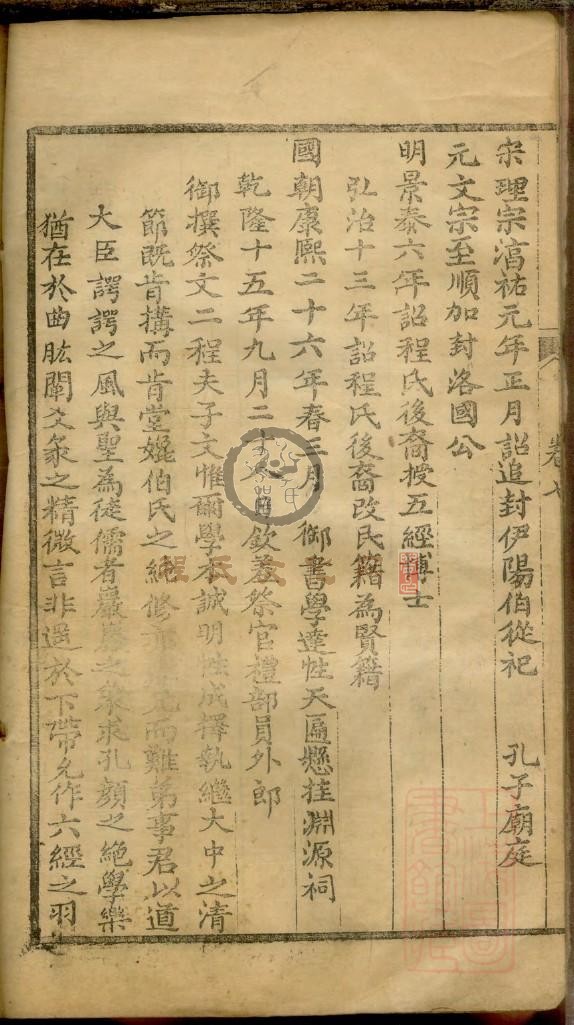 卷七
宗理宗湻祐元年正月詔追封伊陽伯從祀 孔子廟庭
元文宗至順加封洛國公
明景泰六年詔程氏後裔授五經博士
弘治十三年詔程氏後裔改民籍為賢籍
國朝康熙二十六年春三月 御書學達性天匾懸挂淵源祠
乾隆十五年九月二十 日欽差祭官禮部員外郎
御撰祭文二程夫子文惟爾學本誠明性成擇執繼大中之清
節既肯搆而肯堂媲伯氏之純修 兄而難弟事君以道
大臣諤諤之風與聖為徒儒者巖巖之象求孔顏之絕學樂
猶在於曲肱闡爻彖之精微言非過於下帶允作六經之羽